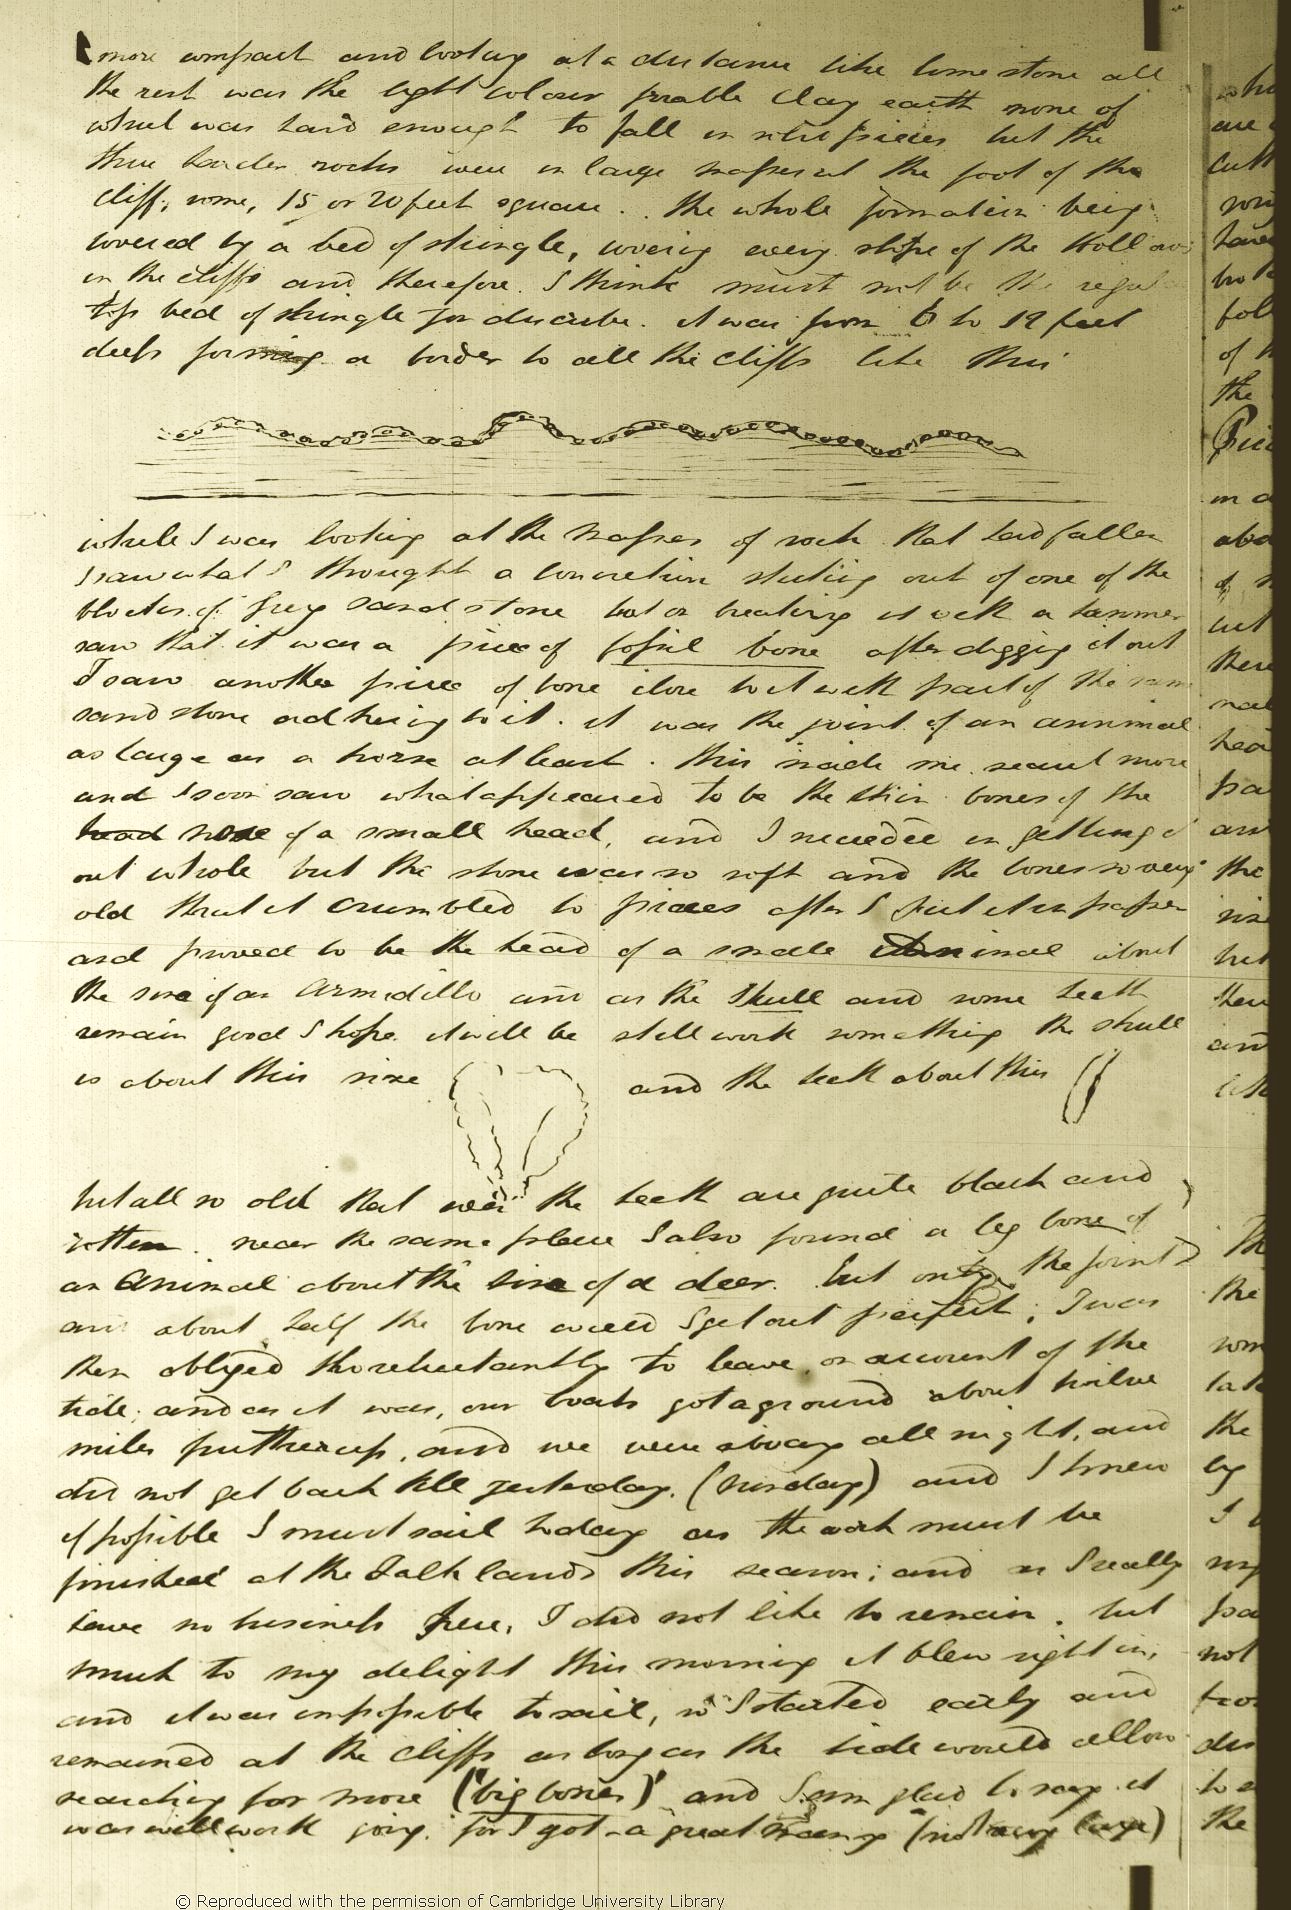 more compact and looking at a distance like lime stone all
the rest was the light colour friable clay earth none of
which was hard enough to fall in pieces but the
three harder rocks were in large masses at the foot of the
cliff, some, 15 or 20 feet square. the whole formation being
covered by a bed of shingle, covering every slope of the Hollows
in the cliffs and therefore I think must not be the regular
top bed of shingle you describe. it was from 6 to 12 feet
deep forming a border to all the cliffs like this
while I was looking at the masses of rock that had fallen
I saw what I thought a concretion sticking out of one of the
blocks of grey sand stone but on breaking it with a hammer
saw that it was a piece of fossil bone after digging it out
I saw another piece of bone close to it with part of the same
sand stone adhering to it. it was the joint of an annimal
as large as a horse at least. this made me search more
and I soon saw what appeared to be the thin bones of the
head nose of a small head, and I succeeded in getting it
out whole but the stone was so soft and the bones so very
old that it crumbled to pieces after I put it in paper
and proved to be the head of a small Animal about
the size of an Armadillo and as the skull and some teeth
remain good I hope it will be still worth something the skull
is about this size and the teeth about this
but all so old that even the teeth are quite black and
rotten. near the same place I also found a leg bone of
an animal about the size of a deer. but only the joints
and about half the bone could I get out perfect; I was
then obliged tho reluctantly to leave on account of the
tide; and as it was, our boats got aground about twelve
miles further up, and we were away all night, and
did not get back till yesterday. (Sunday) and I knew
if possible I must sail today as the work must be
finished at the Falklands this season; and as I really
have no business here, I did not like to remain. but
much to my delight this morning it blew right in,
and it was impossible to sail, so I started early and
remained at the cliffs as long as the tide would allow
searching for more ("big bones") and I am glad to say it
was well worth going. for I got a great many (not very large)
who
are
cut
have
but
foll
of
the
in a
of
but
there
hea
pa
and
the
size
but
then
and
the
som
the
by
I
my
pa
not
dis
the
© Reproduced with the permission of Cambridge University Library